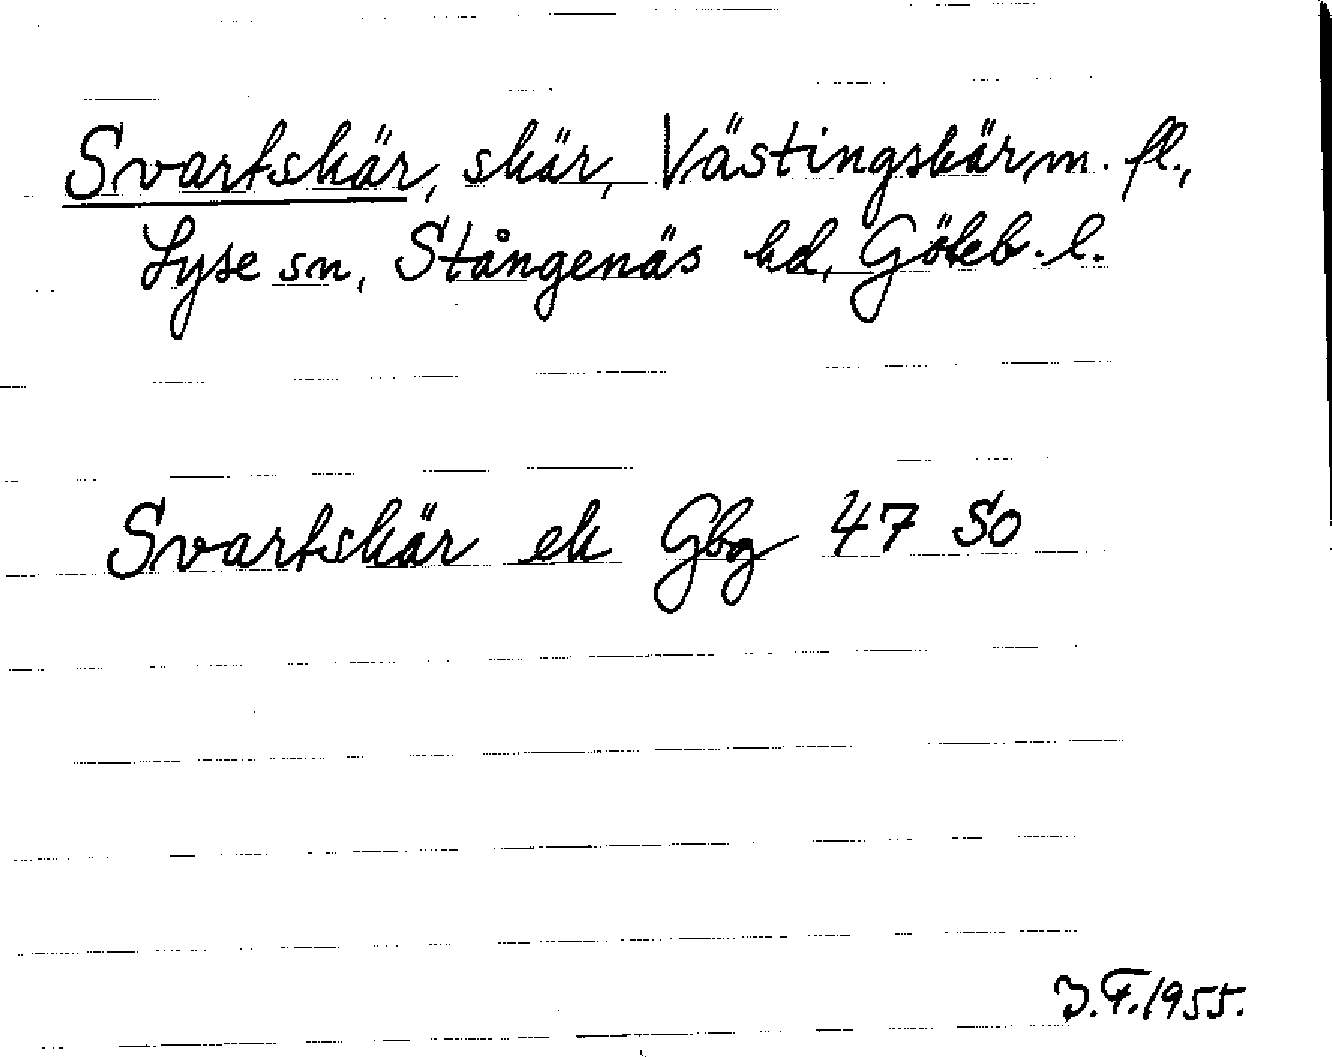 Svartskär, skär, Västingskär m. fl.,
Lyse sn, Stångenäs hd, Göteb. l.
Svartskär ek Gbg 47 SO
J.F.1955.